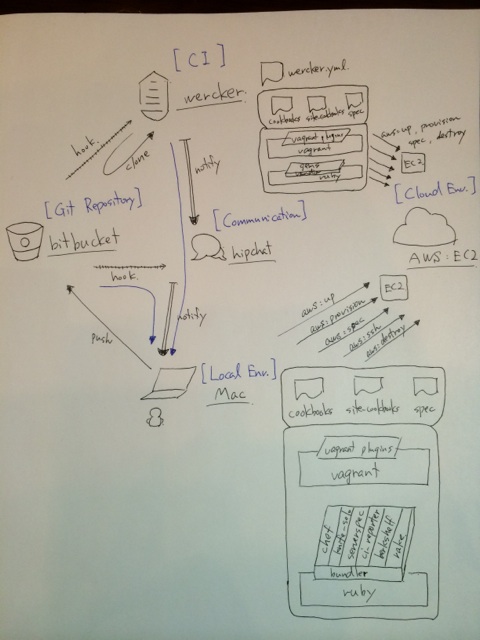 [CI]
wercker
wercker.yml
cookbooks
site-cookbooks
spec
vagrant plugins
vagrant
ruby
aws:up, provision
spec, destroy
EC2
hook
clone
notify
[Git Repository]
bitbucket
[Communication]
hipchat
[Cloud Env.]
AWS:EC2
hook
notify
push
[Local Env.]
Mac
EC2
aws:up
aws:provision
aws:spec
aws:ssh
aws:destroy
cookbooks
site-cookbooks
spec
vagrant plugins
vagrant
chef
knife-solo
serverspec
ci_reporter
berkshelf
rake
bundler
ruby